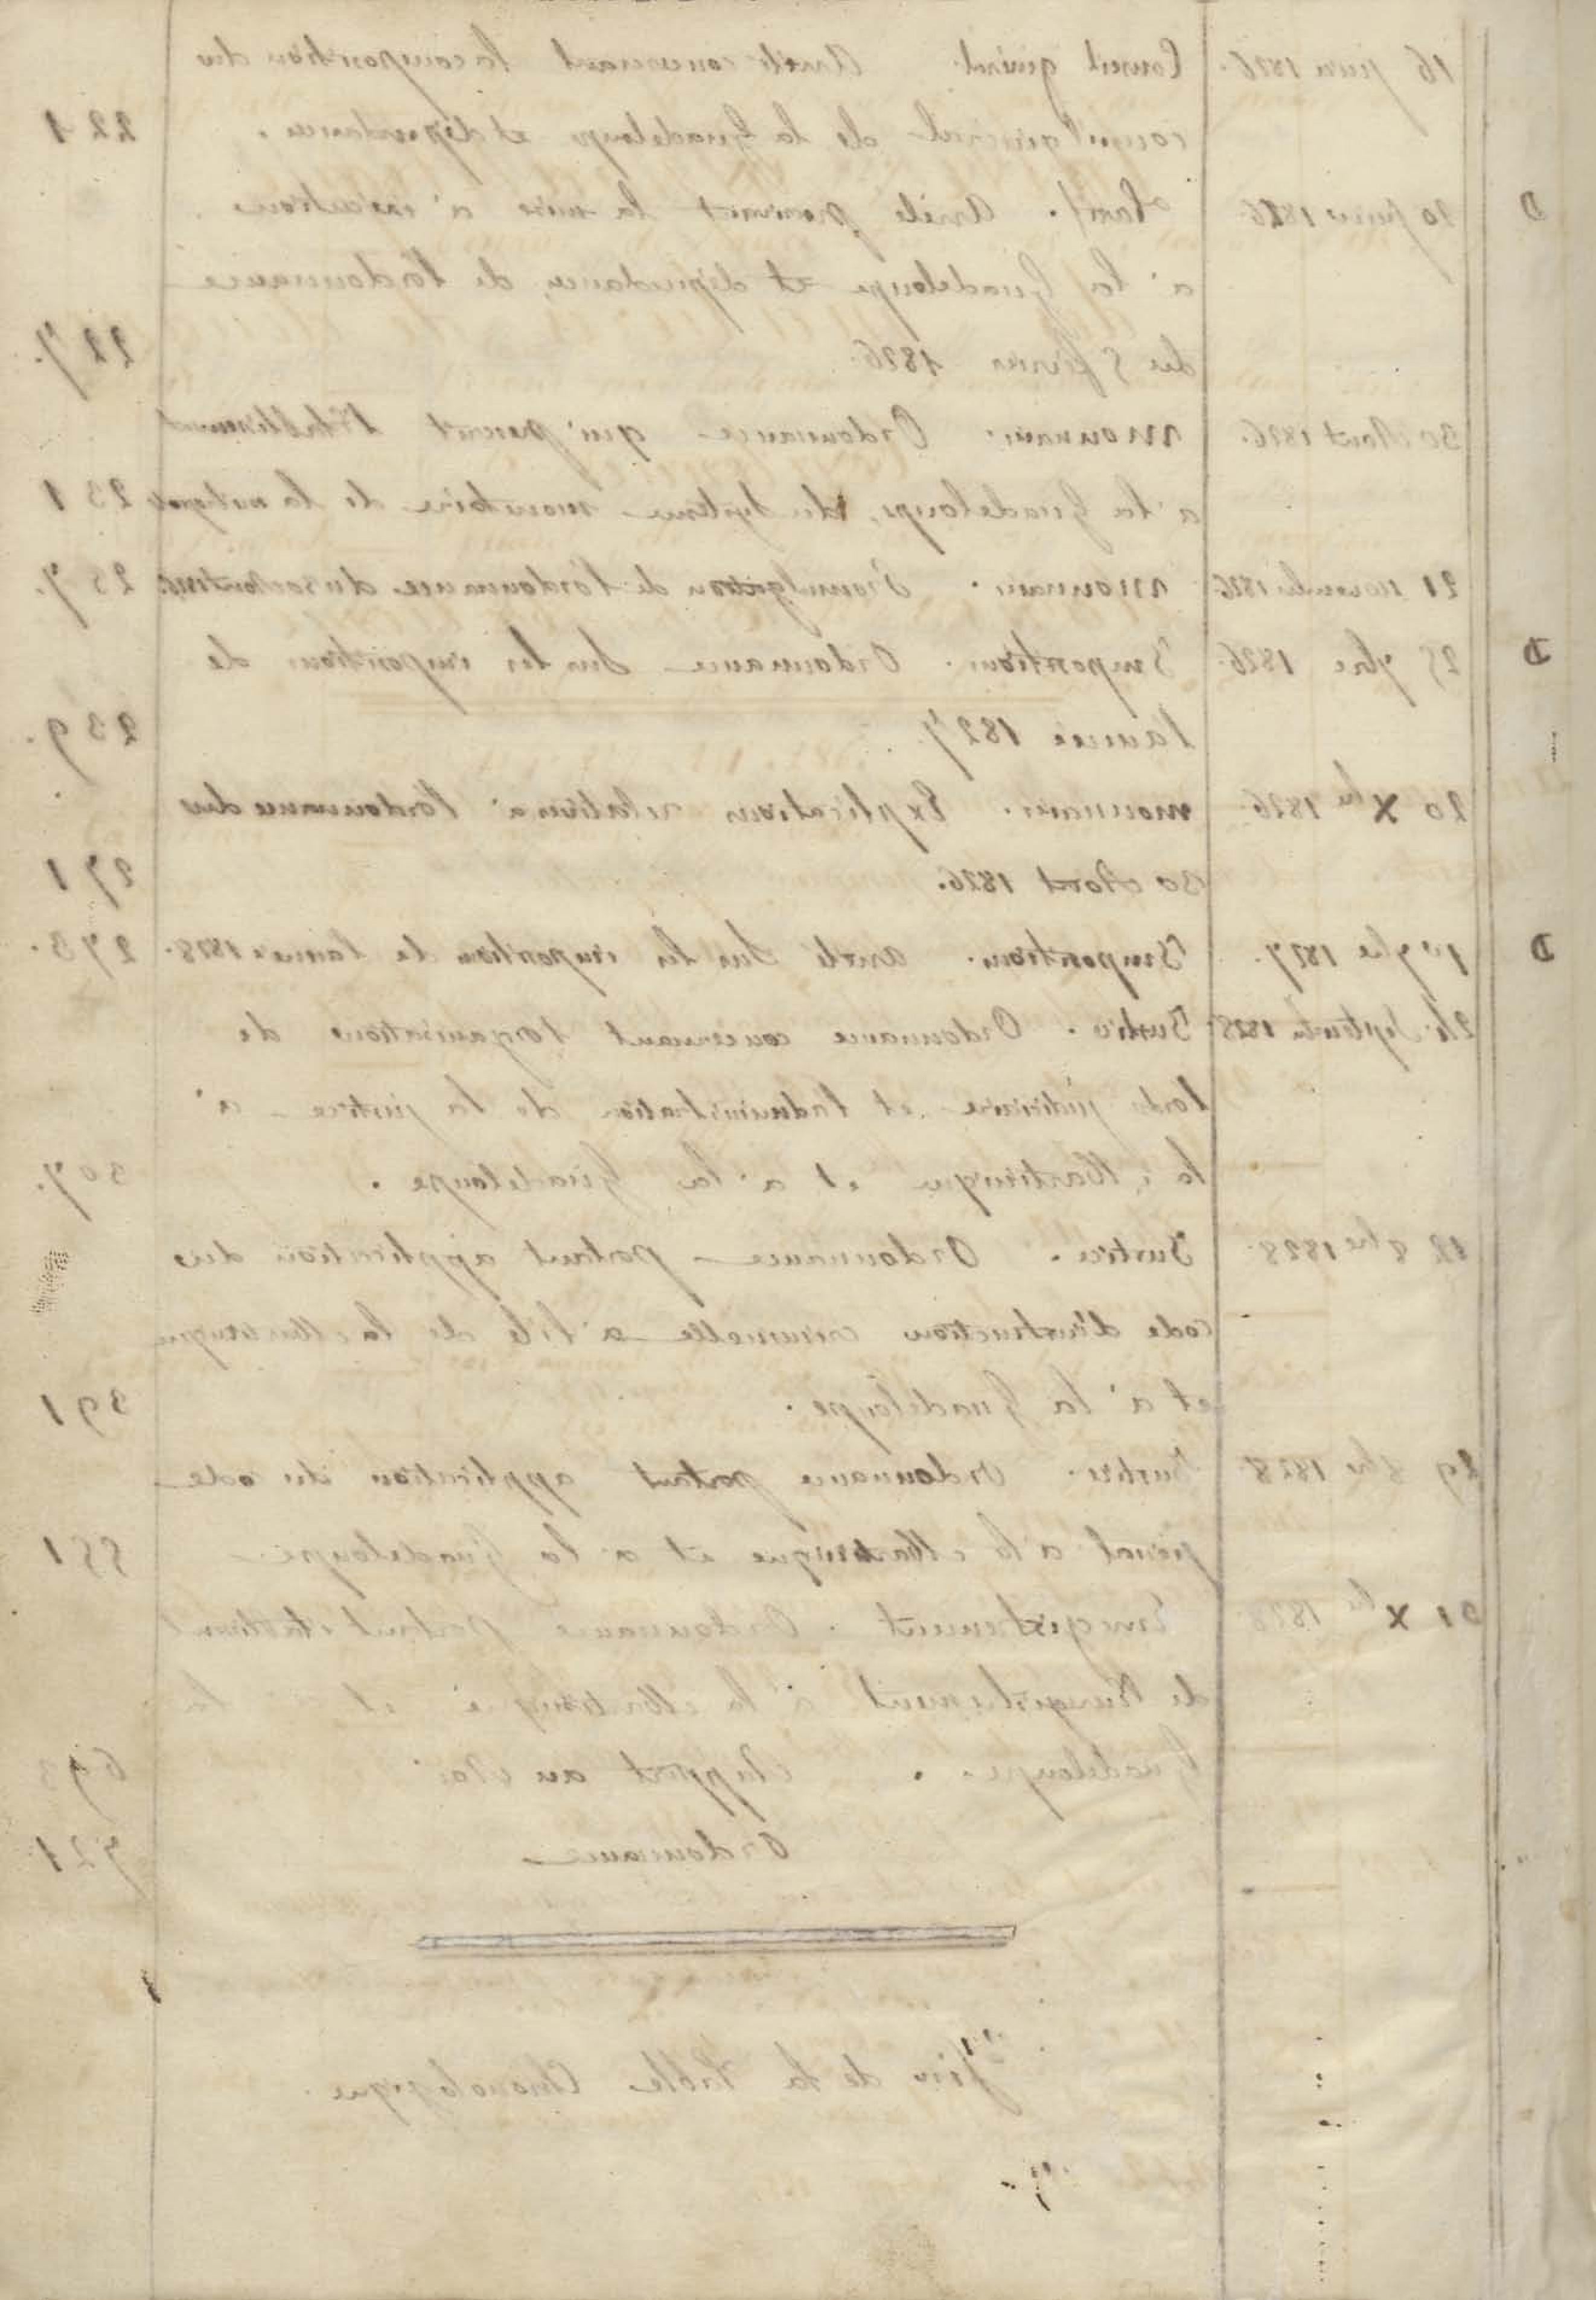 16 juin 1826. Conseil général. Arrêté concernant la composition du
conseil général de la Guadeloupe et dépendances. 221
D 20 1826. Arrêté prescrivant la mise à exécution
à la Guadeloupe et dépendances, de l'ordonnance
du 5 février 1826. 227.
30 Aout 1826. Monnaies. Ordonnance qui prescrit l'établissement
à la Guadeloupe, du système monétaire de la métropole 231
21 novembre 1826. Monnaies. Promulgation de l'ordonnance du 30 Aout 1826. 237.
D 25 9bre 1826. Impositions. Ordonnance sur les impositions de
l'année 1827. 239.
20 Xbre 1826. Monnaies. Explications relatives à l'ordonnance du
30 Aout 1826. 271
D 1er 9bre 1827. Impositions. Arrêté sur les impositions de l'année 1828. 273.
24 Septembre 1828. Justice. Ordonnance concernant l'organisation de
l'ordre judiciaire et l'administration de la justice à
la Martinique et à la Guadeloupe. 307.
12 8bre 1828. Justice. Ordonnance portant application du
code d'instruction criminelle à l'île de la Martinique
et à la Guadeloupe. 391
29 8bre 1828. Justice. Ordonnance portant application du code
pénal à la Martinique et à la Guadeloupe. 551
31 Xbre 1828. Enregistrement. Ordonnance portant
de l'enregistrement à la Martinique et à la
Guadeloupe. Rapport au Roi 693
Ordonnance 721
Fin de la Table Chronologique.